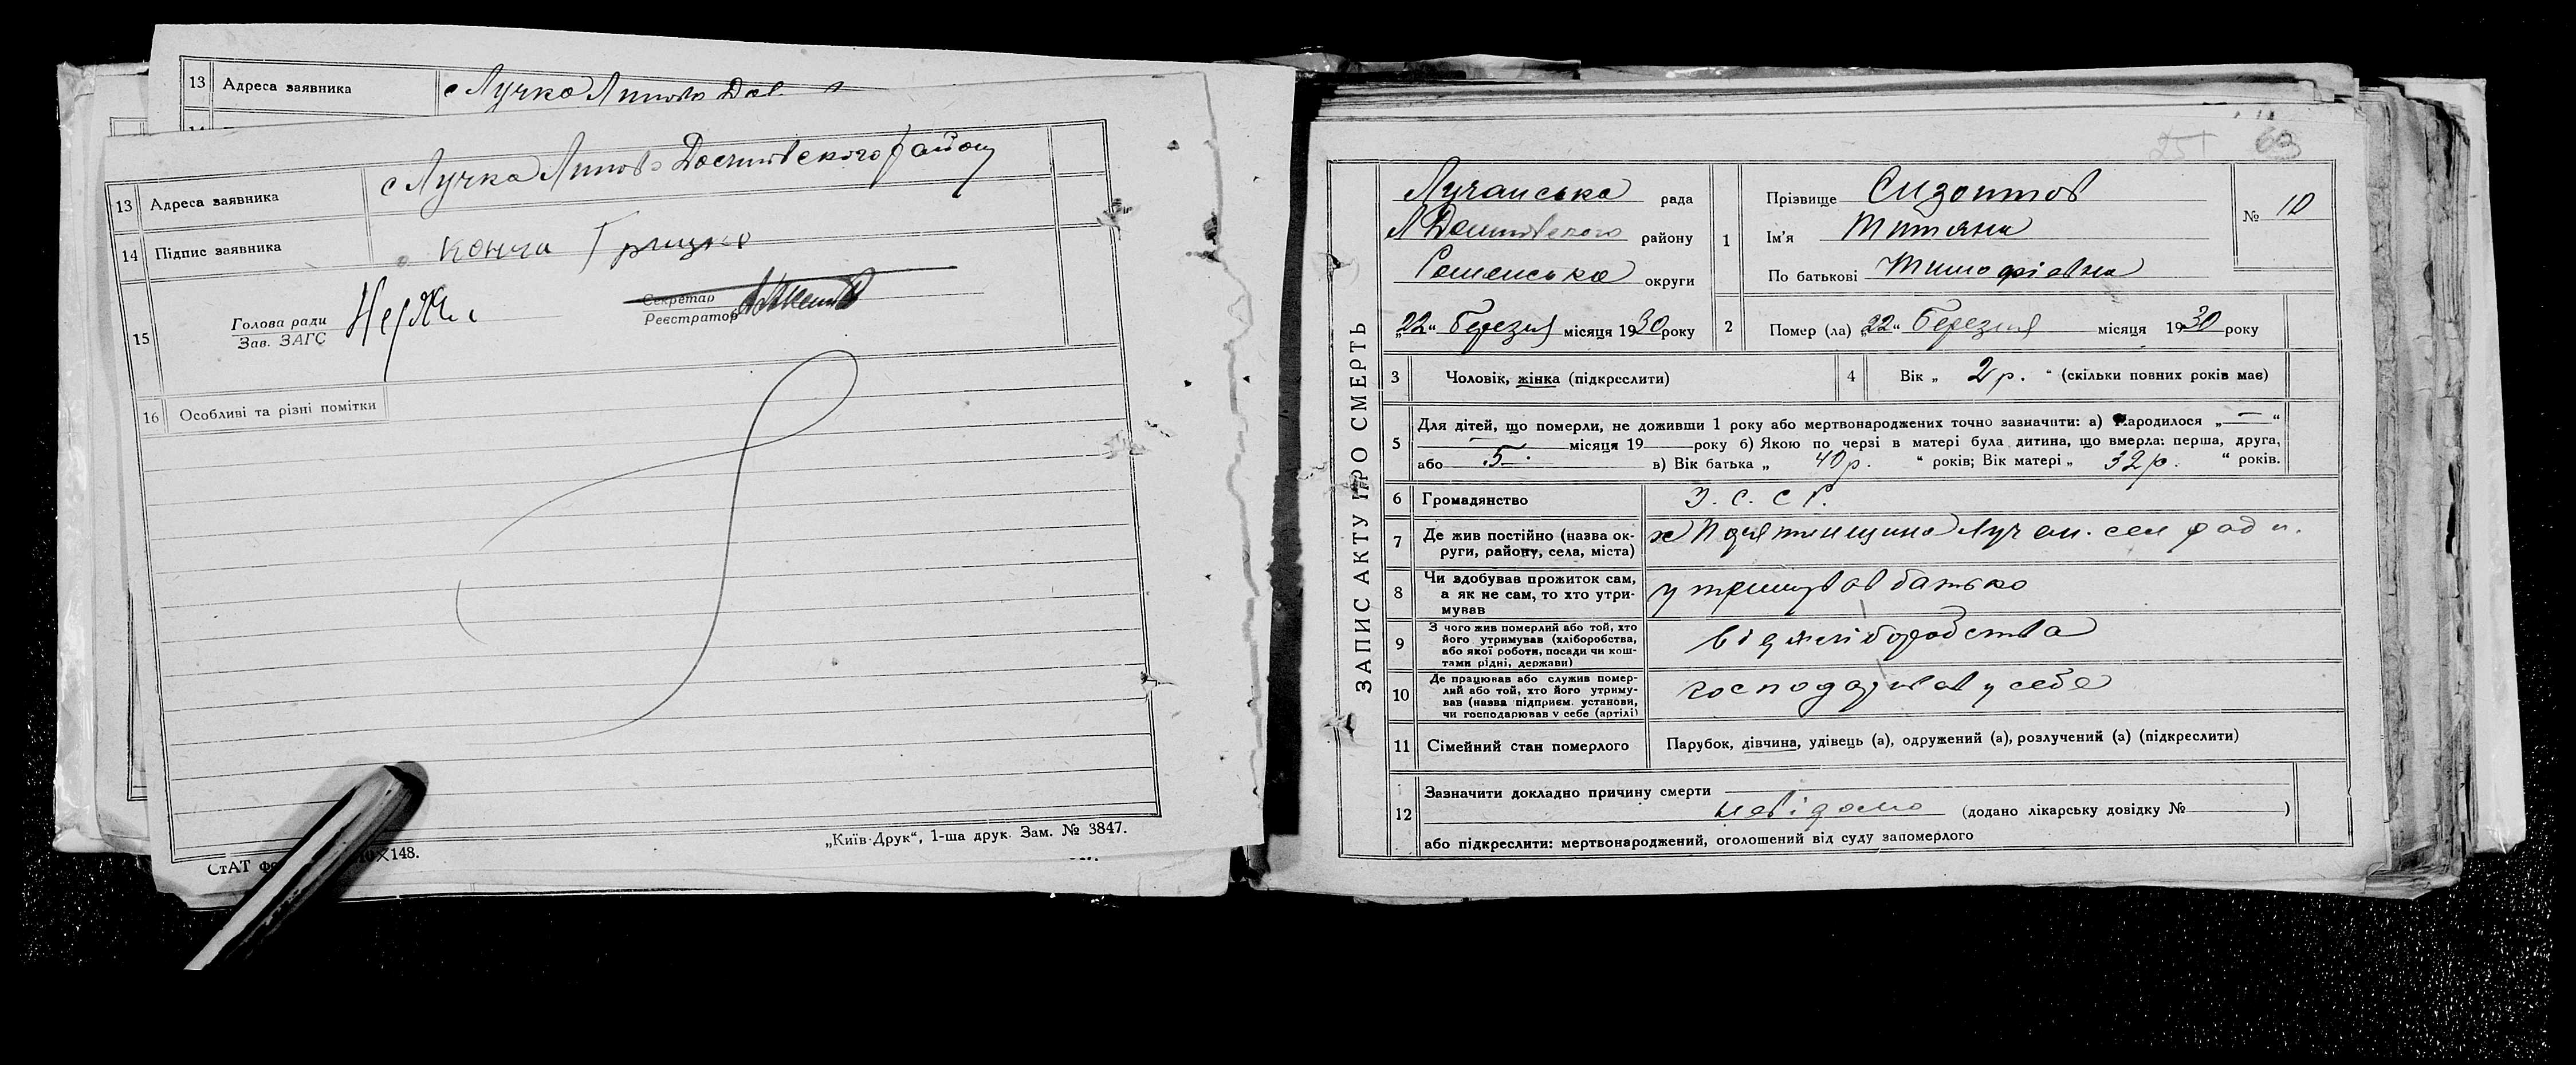 13 Адреса заявника с Лучка Липово
13 Адреса заявника с Лучка Липово Долинського району
14 Підпис заявника Конча Грицко
15 Голова ради
Зав. ЗАГС
Секретар
Реєстратор
16 Особливі та різні помітки
„Київ-Друк“, 1-ша друк. Зам. № 3847.
СтАТ ×148.
ЗАПИС АКТУ ПРО СМЕРТЬ
Лучанська рада
району
Роменська округи
„22“ березня місяця 1930 року
1 Прізвище
Ім'я Титяна
По батькові Тимофіевна
№ 10
2 Помер (ла) „22“ березня місяця 1930 року
3 Чоловік, жінка (підкреслити)
4 Вік „ 2 р. “ (скільки повних років має)
5 Для дітей, що померли, не доживши 1 року або мертвонароджених точно зазначити: а) Народилося „—“
— місяця 19 року б) Якою по черзі в матері була дитина, що вмерла: перша, друга,
або 5. в) Вік батька „ 40 р. “ років; Вік матері „ 32 р. “ років.
6 Громадянство У. С. С. Р.
7 Де жив постійно (назва ок-
руги, району, села, міста) Лучан. сел ради.
8 Чи здобував прожиток сам,
а як не сам, то хто утри-
мував утримував батько
9 З чого жив померлий або той, хто
його утримував (хліборобства,
або якої роботи, посади чи кош-
тами рідні, держави) від хліборобства
10 Де працював або служив помер-
лий або той, хто його утриму-
вав (назва підприєм. установи,
чи господарював у себе (артілі) господарював у себе
11 Сімейний стан померлого Парубок, дівчина, удівець (а), одружений (а), розлучений (а) (підкреслити)
12 Зазначити докладно причину смерти
невідомо (додано лікарську довідку № )
або підкреслити: мертвонароджений, оголошений від суду запомерлого